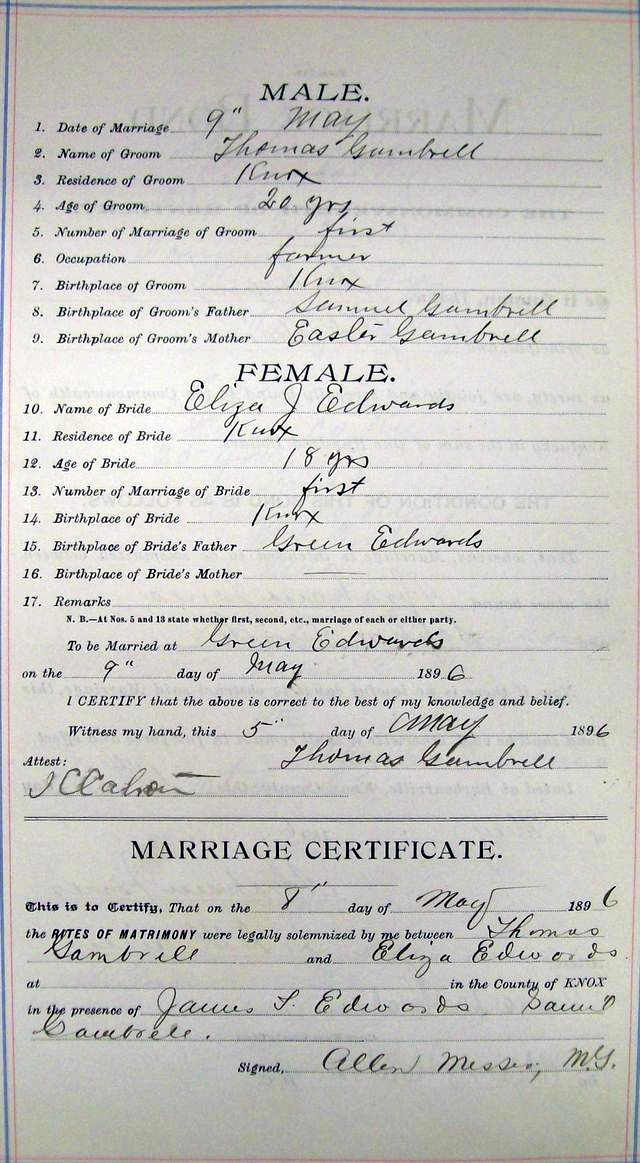 MALE.
1. Date of Marriage 9" May
2. Name of Groom Thomas Gambrell
3. Residence of Groom Knox
4. Age of Groom 20 yrs
5. Number of Marriage of Groom first
6. Occupation farmer
7. Birthplace of Groom Knox
8. Birthplace of Groom's Father Samuel Gambrell
9. Birthplace of Groom's Mother Easter Gambrell
FEMALE.
10. Name of Bride Eliza J Edwards
11. Residence of Bride Knox
12. Age of Bride 18 yrs
13. Number of Marriage of Bride first
14. Birthplace of Bride Knox
15. Birthplace of Bride's Father Green Edwards
16. Birthplace of Bride's Mother
17. Remarks
N. B.—At Nos. 5 and 13 state whether first, second, etc., marriage of each or either party.
To be Married at Green Edwards
on the 9" day of May 1896
I CERTIFY that the above is correct to the best of my knowledge and belief.
Witness my hand, this 5" day of May 1896
Attest: Thomas Gambrell
MARRIAGE CERTIFICATE.
This is to Certify, That on the 8" day of May 1896
the RITES OF MATRIMONY were legally solemnized by me between Thomas
Gambrell and Eliza Edwards
at in the County of KNOX
in the presence of James S. Edwards, Saml
Gambrell.
Signed, Allen Messer, M.G.